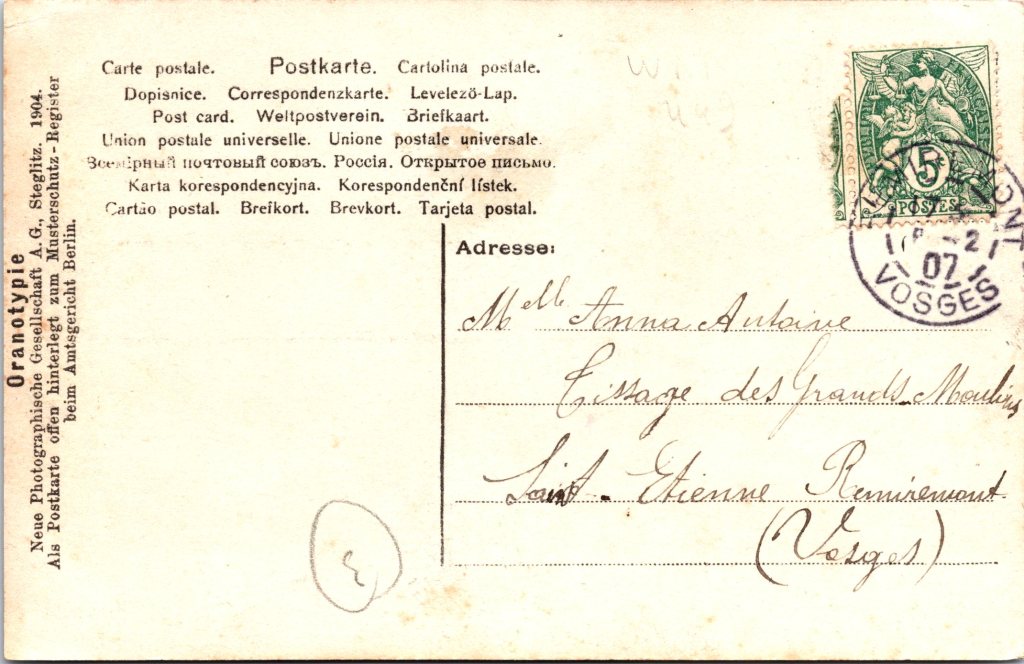 Carte postale. Postkarte. Cartolina postale.
Dopisnice. Correspondenzkarte. Levelező-Lap.
Post card. Weltpostverein. Briefkaart.
Union postale universelle. Unione postale universale.
Всемірный почтовый союзъ. Россія. Открытое письмо.
Karta korespondencyjna. Korespondenční lístek.
Cartão postal. Brefkort. Brevkort. Tarjeta postal.
Oranotypie
Neue Photographische Gesellschaft A. G., Steglitz. 1904.
Als Postkarte offen hinterlegt zum Musterschutz-Register
beim Amtsgericht Berlin.
5
POSTES
2
07
VOSGES
Adresse:
Melle Anna Antoine
Tissage des Grands-Moulins
Saint-Etienne Remiremont
(Vosges)
3